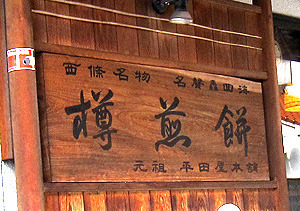 西條名物 名聲轟四海
樽煎餅
元祖 平田屋本舗